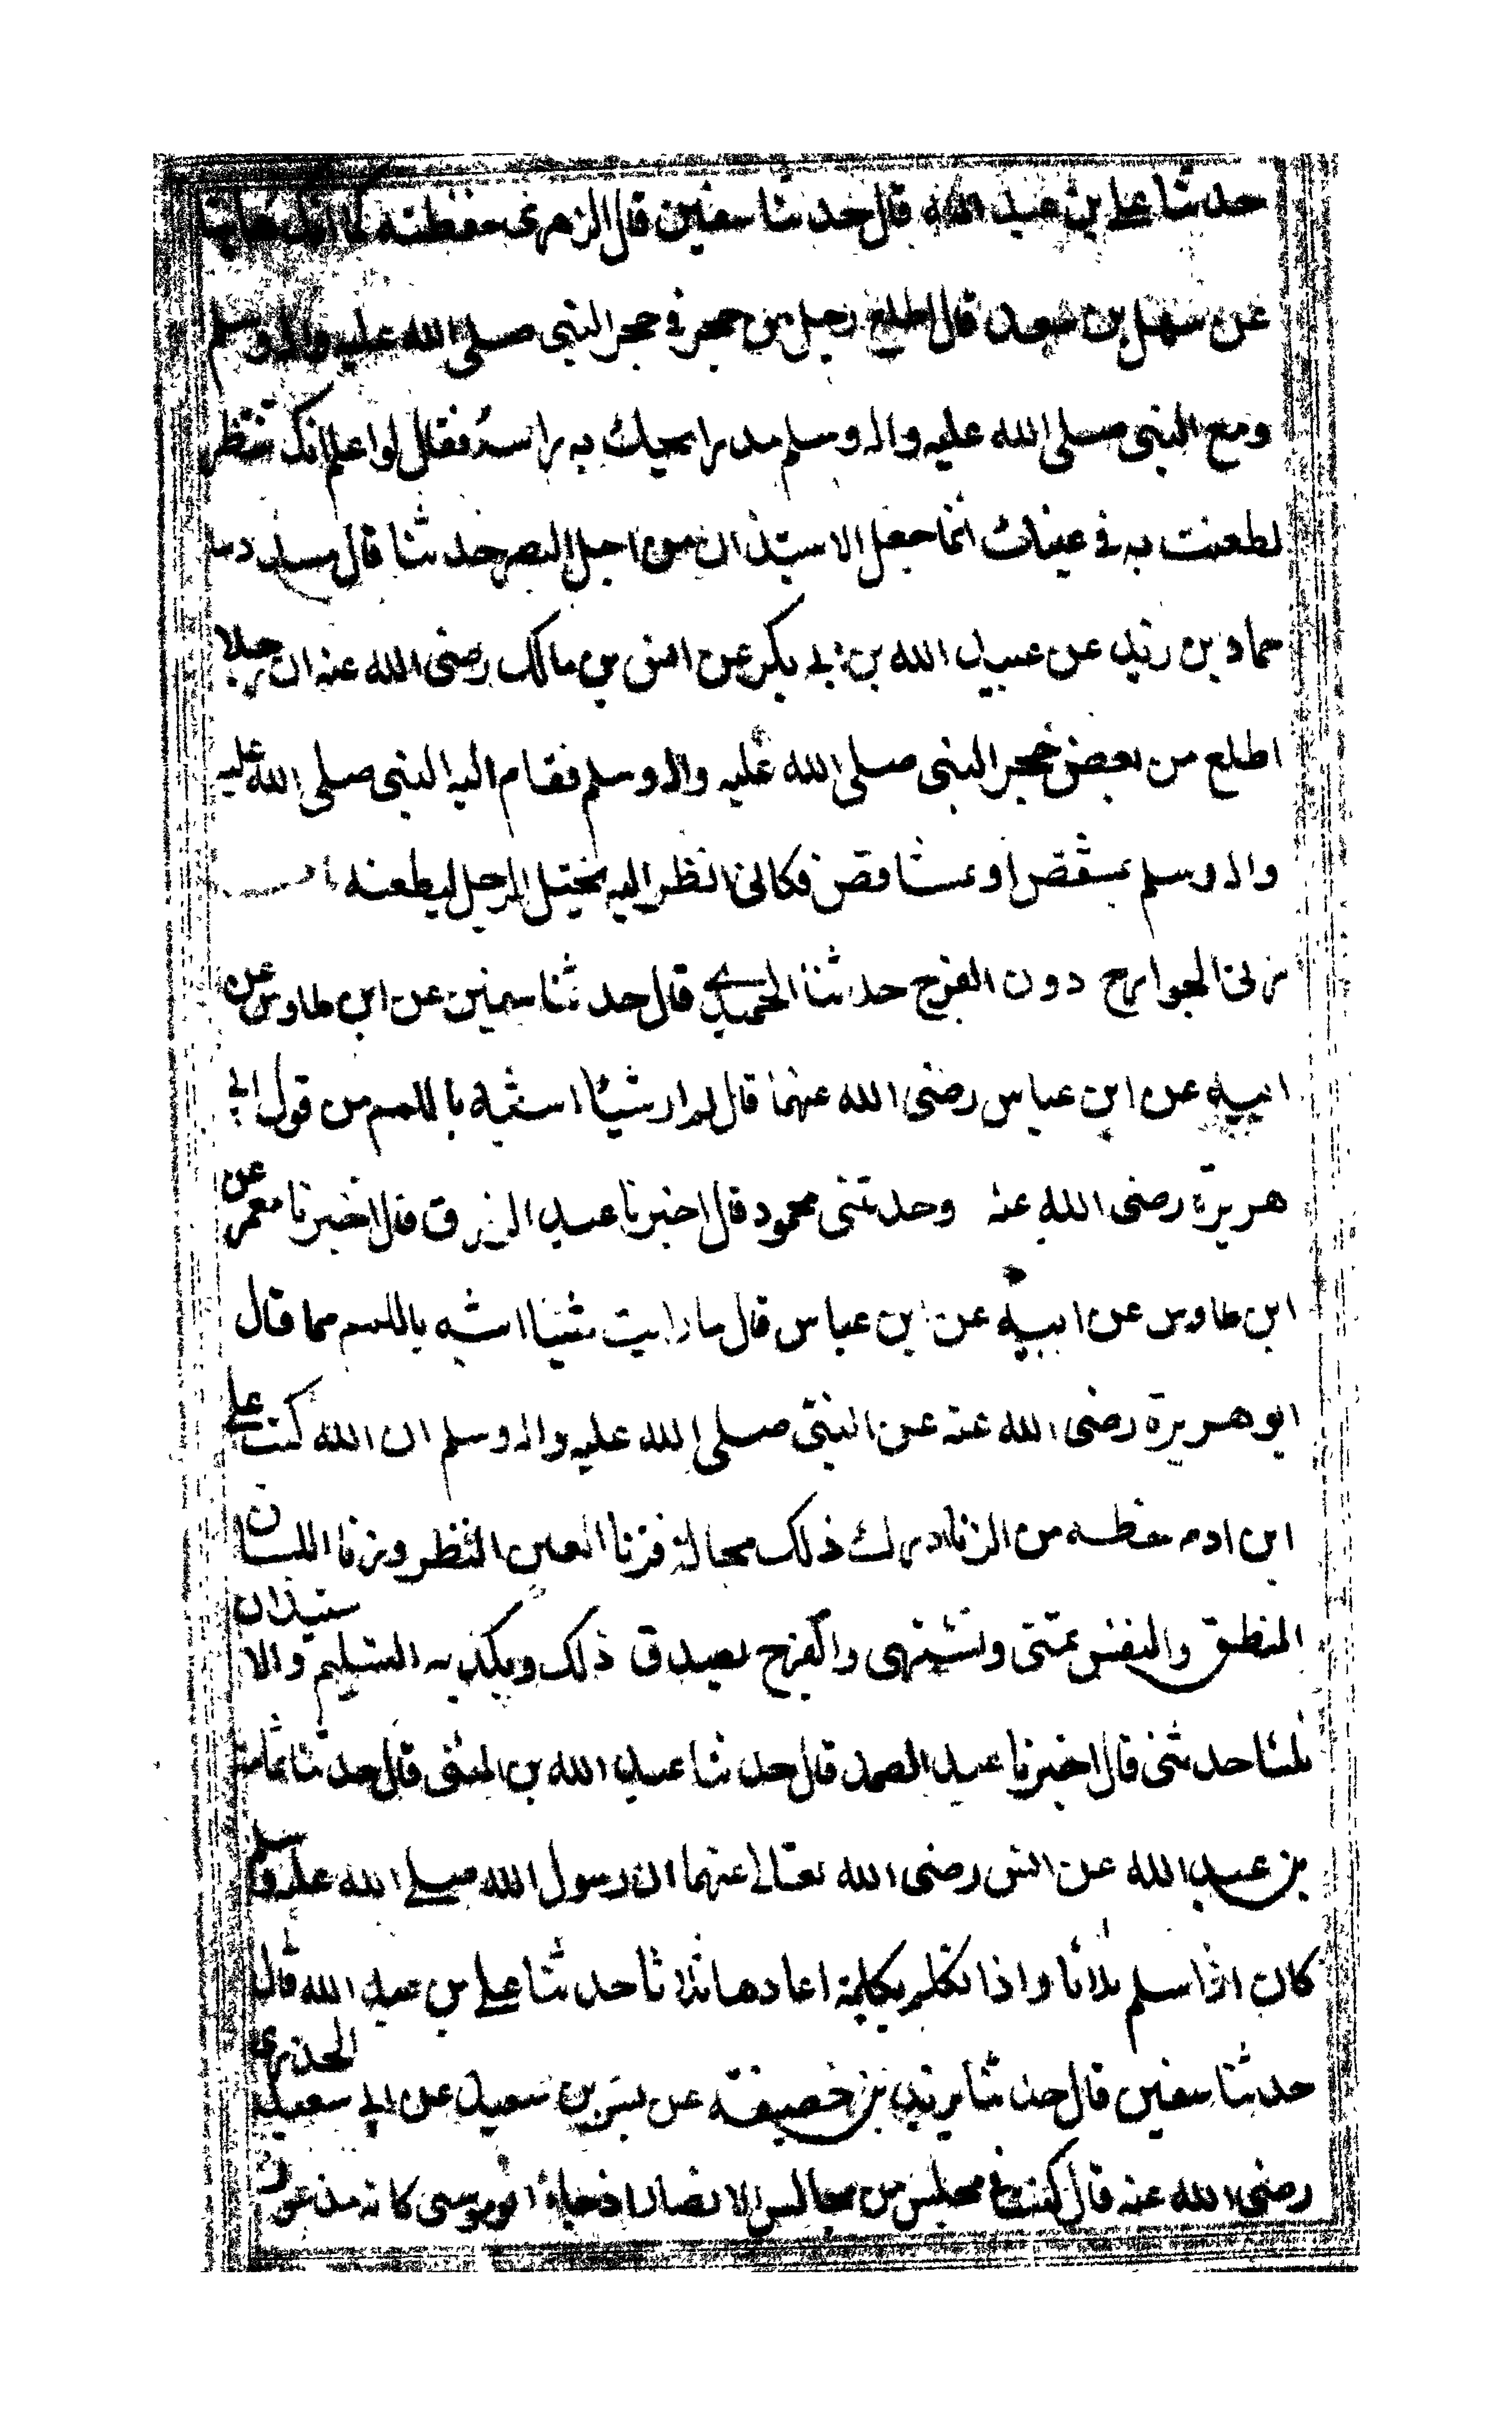 حدثنا علي بن عبد الله قال حدثنا سفين قال الزهري حفظته كما انك هاهنا
عن سهل بن سعد قال اطلع رجل من حجر في حجر النبي صلى الله عليه واله وسلم
ومع النبي صلى الله عليه واله وسلم مدرا يحك به راسه فقال لو اعلم انك تنظر
لطعنت به في عينك انما جعل الاستيذان من اجل البصر حدثنا قال مسدد
حماد بن زيد عن عبيد الله بن ابي بكر عن انس بن مالك رضى الله عنه ان رجلا
اطلع من بعض حجر النبى صلى الله عليه واله وسلم فقام اليه النبى صلى الله عليه
واله وسلم بمشقص او بمشاقص فكانى انظر اليه يختل الرجل ليطعنه
زنى الجوارح دون الفرج حدثنا الحميدي قال حدثنا سفين عن ابن طاوس عن
ابيه عن ابن عباس رضى الله عنهما قال لم ار شيئا اشبه باللمم من قول ابي
هريرة رضى الله عنه وحدثنى محمود قال اخبرنا عبد الرزاق قال اخبرنا معمر عن
ابن طاوس عن ابيه عن ابن عباس قال ما رايت شيئا اشبه باللمم مما قال
ابو هريرة رضى الله عنه عن النبى صلى الله عليه واله وسلم ان الله كتب على
ابن ادم حظه من الزنا ادرك ذلك محالة فزنا العين النظر وزنا اللسان
المنطق والنفس تمنى وتشتهى والفرج يصدق ذلك ويكذبه التسليم والاستيذان
ثلثا حدثنى قال اخبرنا عبد الصمد قال حدثنا عبد الله بن المثنى قال حدثنا ثمامة
بن عبد الله عن انس رضى الله تعالى عنهما ان رسول الله صلى الله عليه وسلم
كان اذا سلم ثلاثا واذا تكلم بكلمة اعادها ثلاثا حدثنا على بن عبد الله قال
حدثنا سفين قال حدثنا يزيد بن خصيفة عن بسر بن سعيد عن ابي سعيد الخدري
رضى الله عنه قال كنت في مجلس من مجالس الانصار اذ جاء ابو موسى كانه مذعور